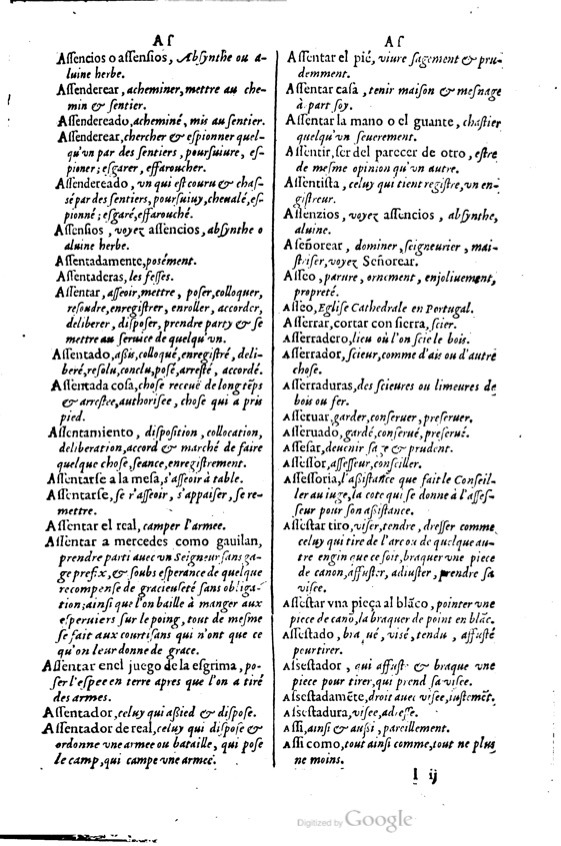 Aſ
Aſſencios o aſſenſios, Abſynthe ou a-
luine herbe.
Aſſenderear, acheminer, mettre au che-
min & ſentier.
Aſſendereado, acheminé, mis au ſentier.
Aſſenderear, chercher & eſpionner quel-
qu'vn par des ſentiers, pourſuiure, eſ-
pioner; eſgarer, effaroucher.
Aſſendereado, vn qui eſt couru & chaſ-
ſé par des ſentiers, pourſuiuy, cheualé, eſ-
pionné; eſgaré, effarouché.
Aſſenſios, voyez aſſencios, abſynthe o
aluine herbe.
Aſſentadamente, posément.
Aſſentaderas, les feſſes.
Aſſentar, aſſeoir, mettre, poſer, colloquer,
reſoudre, enregiſtrer, enroller, accorder,
deliberer, diſpoſer, prendre party & ſe
mettre au ſeruice de quelqu'vn.
Aſſentado, aßis, colloqué, enregiſtré, deli-
beré, reſolu, conclu, poſé, arreſté, accordé.
Aſſentada coſa, choſe receuë de long tẽps
& arreſtee, authoriſee, choſe qui a pris
pied.
Aſſentamiento, diſpoſition, collocation,
deliberation, accord & marché de faire
quelque choſe, ſeance, enregiſtrement.
Aſſentarſe a la meſa, s'aſſeoir à table.
Aſſentarſe, ſe r'aſſeoir, s'appaiſer, ſe re-
mettre.
Aſſentar el real, camper l'armee.
Aſſentar a mercedes como gauilan,
prendre parti auec vn Seigneur ſans ga-
ge prefix, & ſoubs eſperance de quelque
recompenſe de gracieuſeté ſans obliga-
tion; ainſi que l'on baille à manger aux
eſperuiers ſur le poing, tout de meſme
ſe fait aux courtiſans qui n'ont que ce
qu'on leur donne de grace.
Aſſentar enel juego de la eſgrima, po-
ſer l'eſpee en terre apres que l'on a tiré
des armes.
Aſſentador, celuy qui aßied & diſpoſe.
Aſſentador de real, celuy qui diſpoſe &
ordonne vne armee ou bataille, qui poſe
le camp, qui campe vne armee.
Aſ
Aſſentar el pié, viure ſagement & pru-
demment.
Aſſentar caſa, tenir maiſon & meſnage
à part ſoy.
Aſſentar la mano o el guante, chaſtier
quelqu'vn ſeuerement.
Aſſentir, ſer del parecer de otro, eſtre
de meſme opinion qu'vn autre.
Aſſentiſta, celuy qui tient regiſtre, vn en-
giſtreur.
Aſſenzios, voyez aſſencios, abſynthe,
aluine.
Aſeñorear, dominer, ſeigneurier, mai-
ſtriſer, voyez Señorear.
Aſſeo, parure, ornement, enjoliuement,
propreté.
Aſſeo, Egliſe Cathedrale en Portugal.
Aſſerrar, cortar con ſierra, ſcier.
Aſſerradero, lieu où l'on ſcie le bois.
Aſſerrador, ſcieur, comme d'ais ou d'autre
choſe.
Aſſerraduras, des ſcieures ou limeures de
bois ou fer.
Aſſeruar, garder, conſeruer, preſeruer.
Aſſeruado, gardé, conſerué, preſerué.
Aſſeſar, deuenir ſage & prudent.
Aſſeſſor, aſſeſſeur, conſeiller.
Aſſeſſoria, l'aßiſtance que fait le Conſeil-
ler au iuge, la cote qui ſe donne à l'aſſeſ-
ſeur pour ſon aßiſtance.
Aſſeſtar tiro, viſer, tendre, dreſſer comme
celuy qui tire de l'arc ou de quelque au-
tre engin que ce ſoit, braquer vne piece
de canon, affuſter, adiuſter, prendre ſa
viſee.
Aſſeſtar vna pieça al blãco, pointer vne
piece de canõ, la braquer de point en blãc.
Aſſeſtado, braqué, viſé, tendu, affuſté
pour tirer.
Aſſeſtador, qui affuſte & braque vne
piece pour tirer, qui prend ſa viſee.
Aſſeſtadamẽte, droit auec viſee, iuſtemẽt.
Aſſeſtadura, viſee, adreſſe.
Aſſi, ainſi & auſſi, pareillement.
Aſſi como, tout ainſi comme, tout ne plus
ne moins.
I ij
Digitized by Google